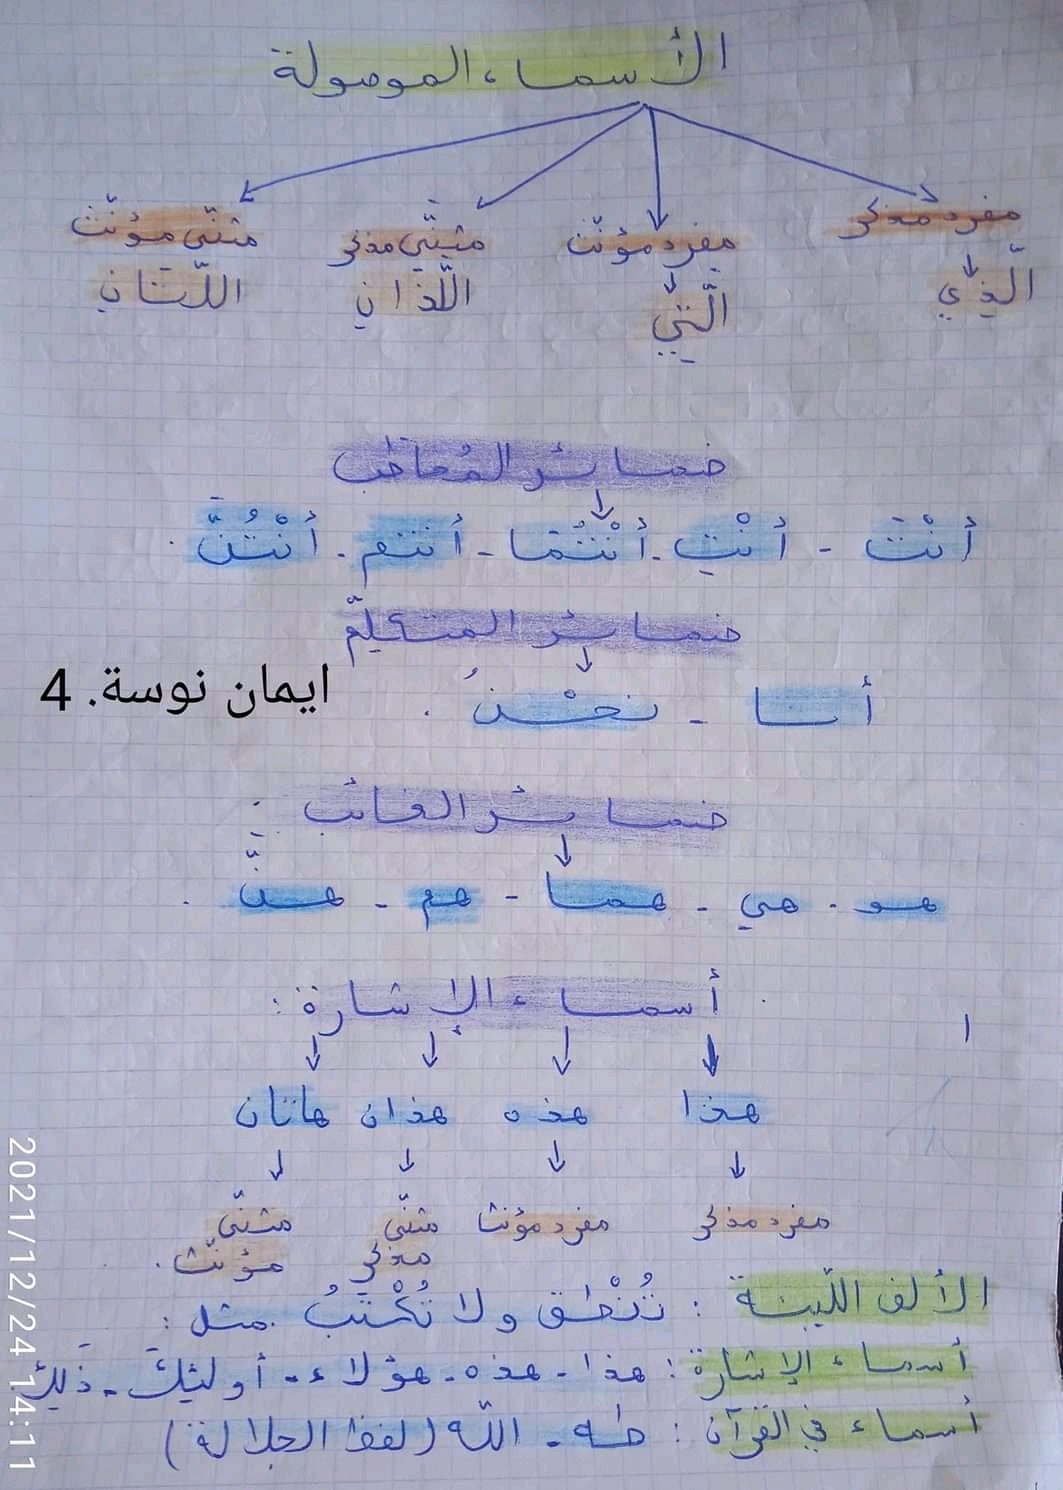 الأسماء الموصولة
مفرد مذكر مفرد مؤنّث مثنّى مذكر مثنّى مؤنّث
الّذي الّتي اللّذان اللّتان
ضمائر المُخاطب
أنْتَ - أنْتِ - أنْتُمَا - أنتم - أنْتُنَّ .
ضمائر المتكلّم
أنا - نحْنُ .
ايمان نوسة. 4
ضمائر الغائب :
هو - هي - هما - هم - هنَّ .
أسماء الإشارة :
هذا هذه هذان هاتان
مفرد مذكر مفرد مؤنث مثنّى مثنّى
مذكر مؤنّث .
الألف الليّنة : تُنْطق ولا تُكْتَبُ مثل :
أسماء الإشارة : هذا - هذه - هؤلاء - أولئِكَ - ذَلِكَ
أسماء في القرآن : طه - اللّه (لفظ الجلالة)
2021/12/24 14:11